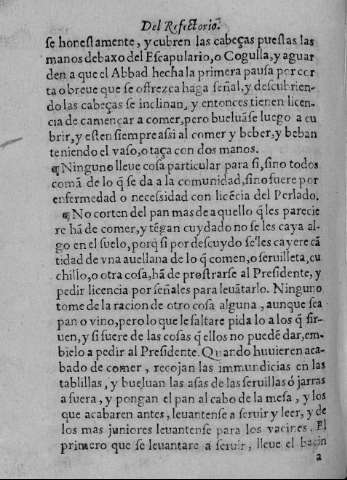 Del Refectorio.
se honestamente, y cubren las cabeças puestas las
manos debaxo del Escapulario, o Cogulla, y aguar
den a que el Abbad hecha la primera pausa por cor
ta o breue que se ofrezca haga señal, y descubrien-
do las cabeças se inclinan, y entonces tienen licen-
cia de camençar a comer, pero bueluãse luego a cu
brir, y esten siempre assi al comer y beber, y beban
teniendo el vaso, o taça con dos manos.
¶Ninguno lleue cosa particular para si, sino todos
comã de lo q̃ se da a la comunidad, sino fuere por
enfermedad o necessidad con licẽcia del Perlado.
¶No corten del pan mas de aquello q̃ les parecie
re hã de comer, y tẽgan cuydado no se les caya al-
go en el suelo, porq̃ si por descuydo se les cayere cã
tidad de vna auellana de lo q̃ comen, o seruilleta, cu
chillo, o otra cosa, hã de prostrarse al Presidente, y
pedir licencia por señales para leuãtarlo. Ninguno
tome de la racion de otro cosa alguna, aunque sea
pan o vino, pero lo que le faltare pida lo a los q̃ sir-
uen, y si fuere de las cosas q̃ ellos no puedẽ dar, em-
bielo a pedir al Presidente. Quando huuieren aca-
bado de comer, recojan las immundicias en las
tablillas, y bueluan las asas de las seruillas ó jarras
a fuera, y pongan el pan al cabo de la mesa, y los
que acabaren antes, leuantense a seruir y leer, y de
los mas juniores leuantense para los vacines. El
primero que se leuantare a seruir, lleue el bacin
a